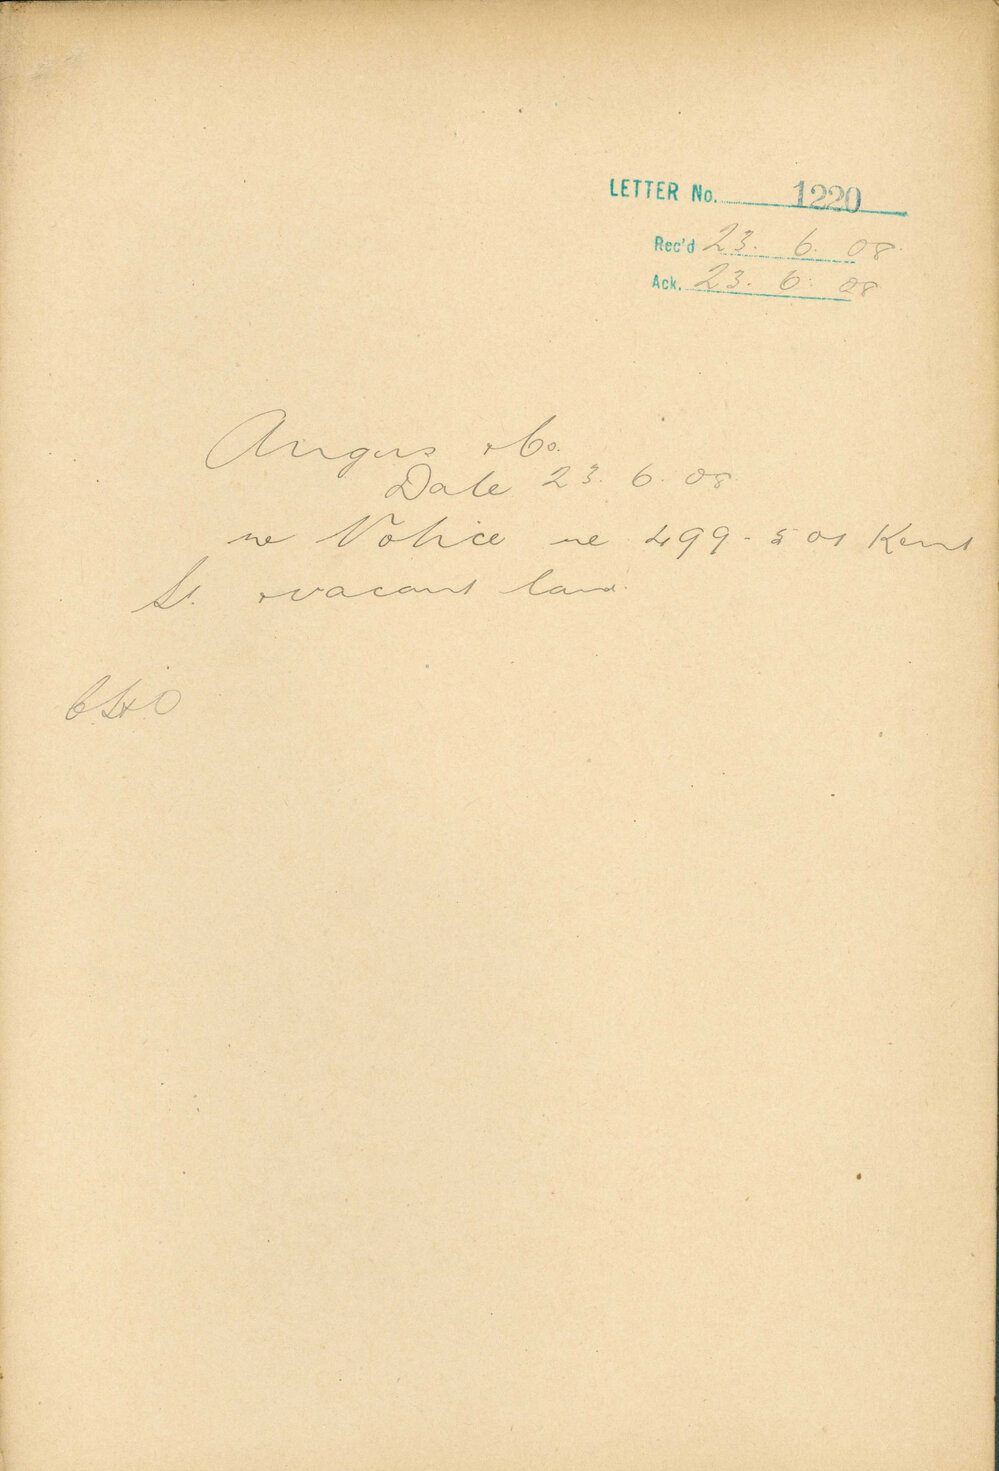 LETTER No. 1220
Rec'd 23. 6. 08
Ack. 23. 6. 08
Angus & Co.
Date 23. 6. 08
re Notice re 499-501 Kent
St. & vacant land.
C.H.O